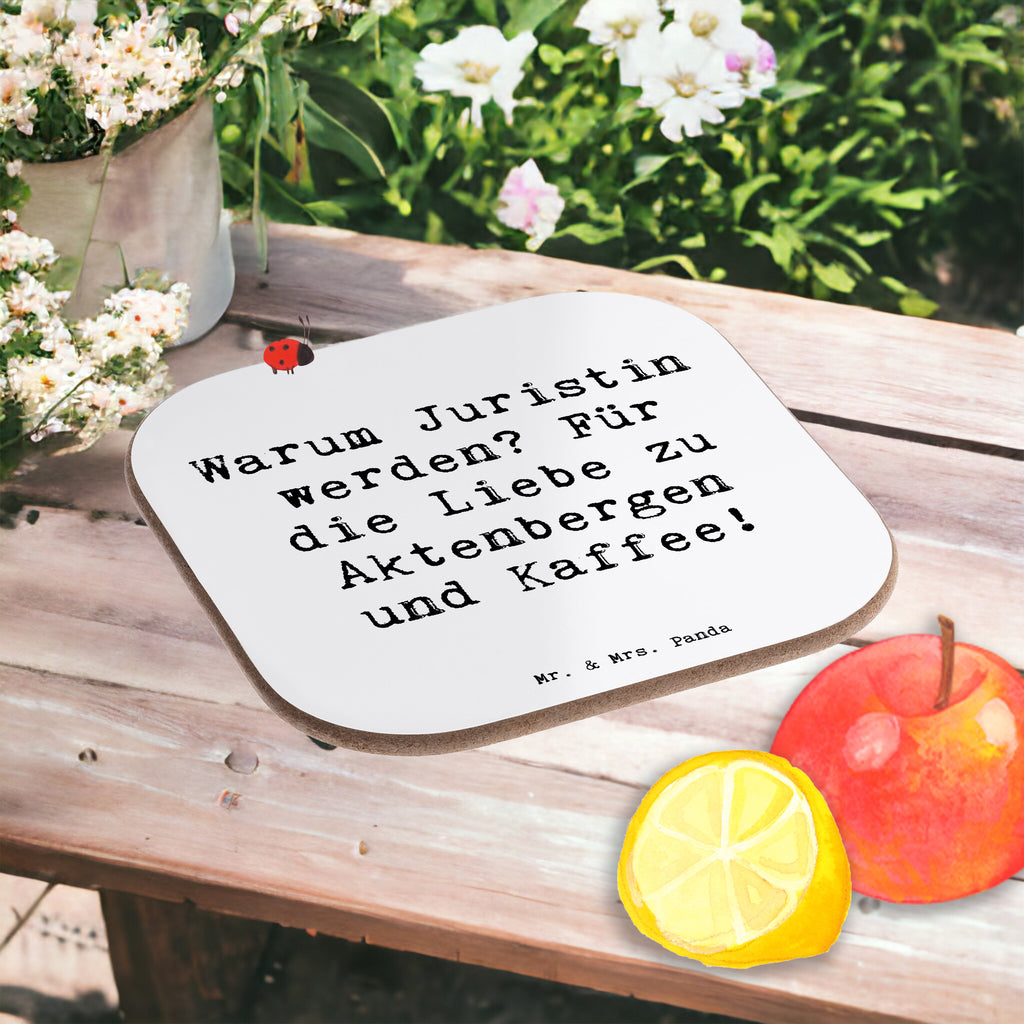 Warum Juristin
werden? Für
die Liebe zu
Aktenbergen
und Kaffee!
Mr. & Mrs. Panda